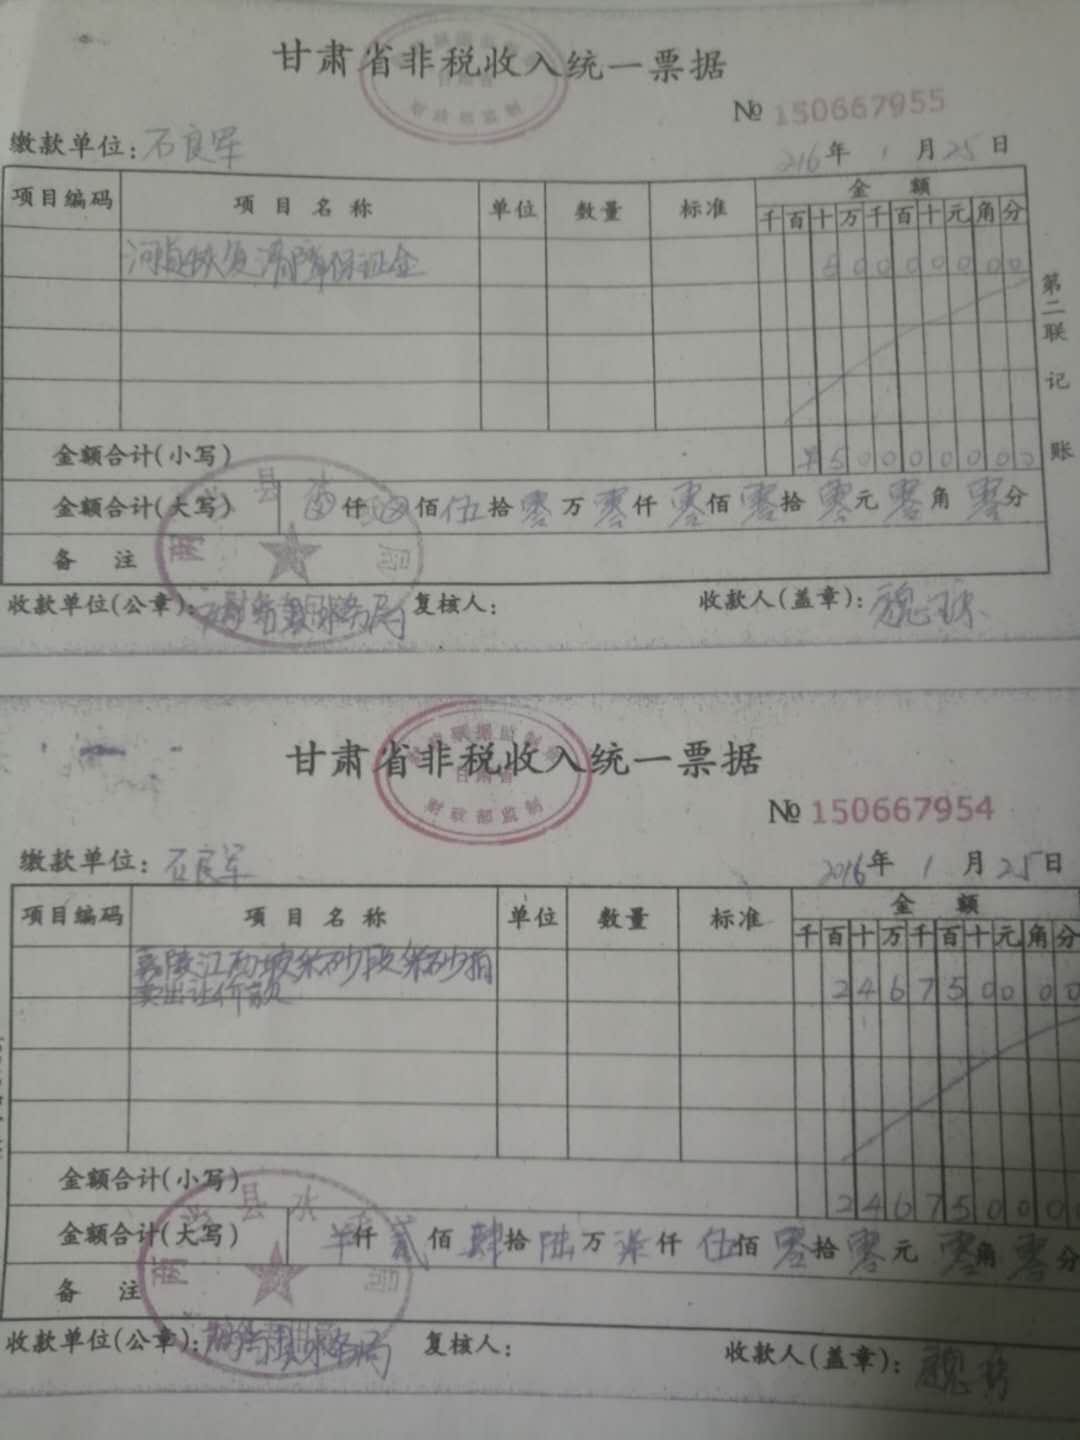 甘肃省非税收入统一票据
№ 150667955
缴款单位：石良军
216年 1 月 25 日
项目编码 项目名称 单位 数量 标准 金额
千百十万千百十元角分
河道恢复清障保证金 50000000
第二联 记账
金额合计(小写) ¥50000000
金额合计(大写) 仟 佰 伍拾 零万 零仟 零佰 零拾 零元 零角 零分
备注
收款单位(公章)： 复核人： 收款人(盖章)：
甘肃省非税收入统一票据
№ 150667954
缴款单位：石良军
2016年 1 月 25 日
项目编码 项目名称 单位 数量 标准 金额
千百十万千百十元角分
嘉陵江 坡采砂段采砂拍
卖出让价款 246750000
金额合计(小写) 246750000
金额合计(大写) 仟 贰佰 肆拾 陆万 柒仟 伍佰 零拾 零元 零角 零分
备注
收款单位(公章)： 复核人： 收款人(盖章)：